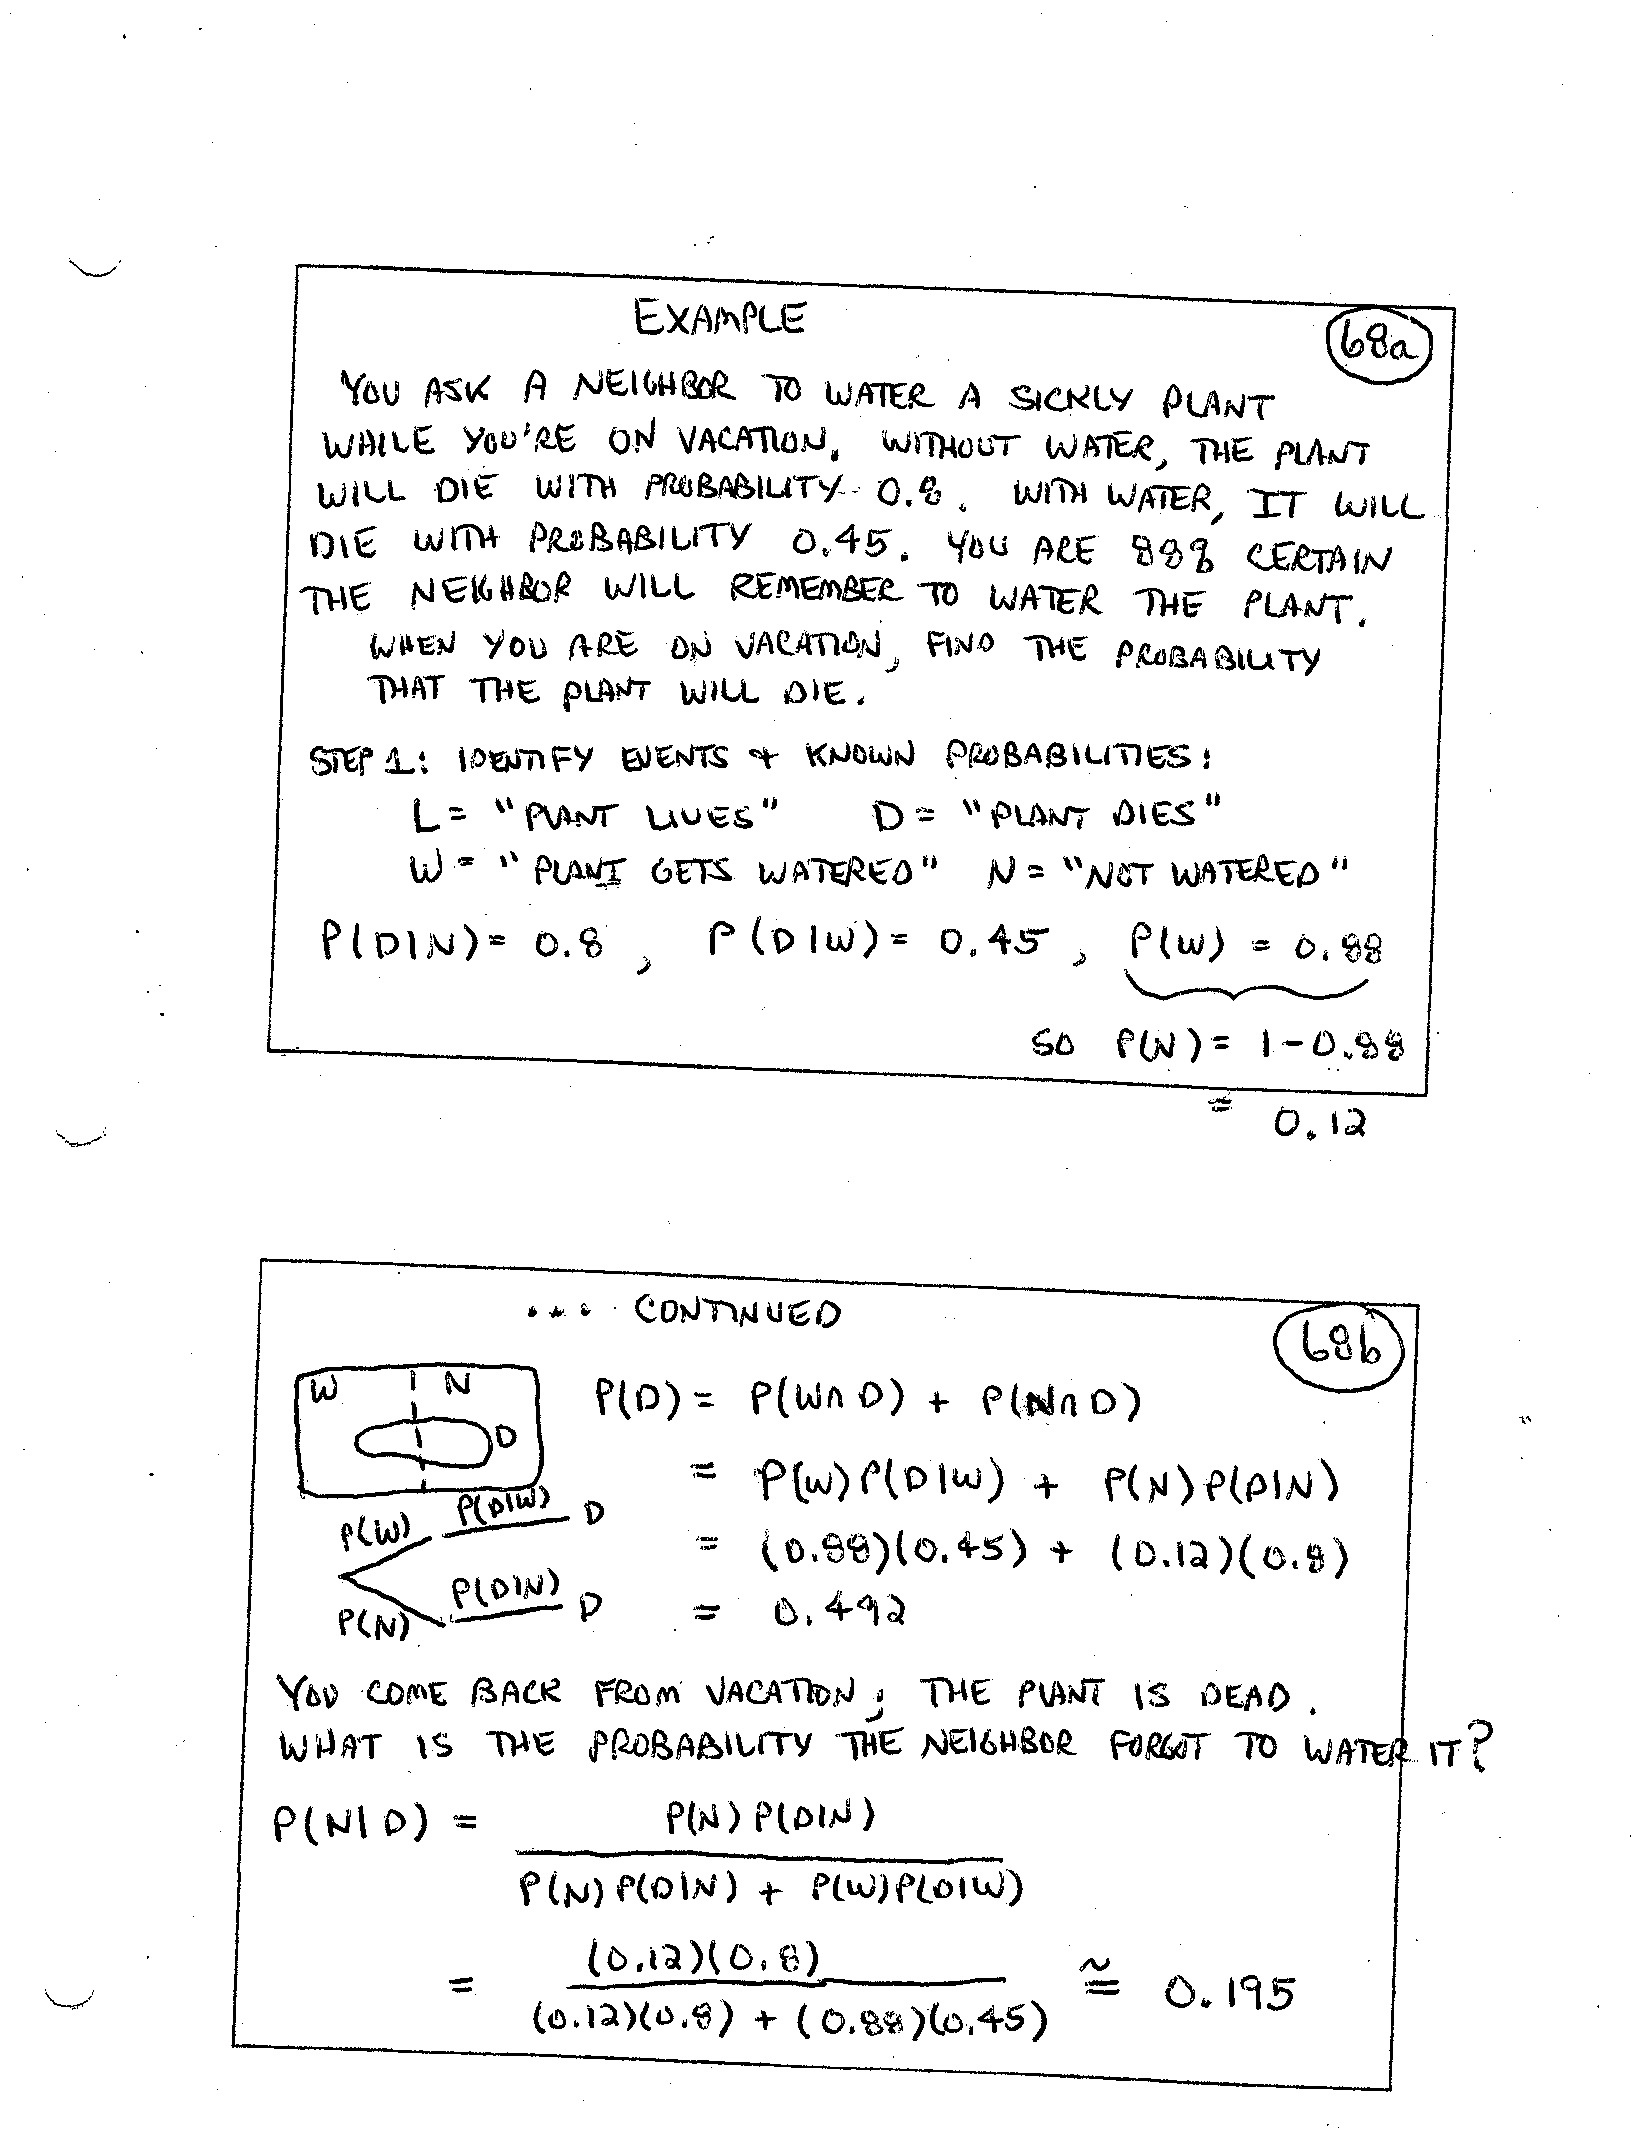 EXAMPLE
68a
YOU ASK A NEIGHBOR TO WATER A SICKLY PLANT
WHILE YOU'RE ON VACATION. WITHOUT WATER, THE PLANT
WILL DIE WITH PROBABILITY 0.8. WITH WATER, IT WILL
DIE WITH PROBABILITY 0.45. YOU ARE 88% CERTAIN
THE NEIGHBOR WILL REMEMBER TO WATER THE PLANT.
WHEN YOU ARE ON VACATION, FIND THE PROBABILITY
THAT THE PLANT WILL DIE.
STEP 1: IDENTIFY EVENTS + KNOWN PROBABILITIES:
L = "PLANT LIVES" D = "PLANT DIES"
W = "PLANT GETS WATERED" N = "NOT WATERED"
P(D|N) = 0.8, P(D|W) = 0.45, P(W) = 0.88
SO P(N) = 1 - 0.88
= 0.12
... CONTINUED
68b
W N
D
P(D) = P(W∩D) + P(N∩D)
= P(W)P(D|W) + P(N)P(D|N)
P(W) P(D|W) D
= (0.88)(0.45) + (0.12)(0.8)
P(N) P(D|N) D
= 0.492
YOU COME BACK FROM VACATION; THE PLANT IS DEAD.
WHAT IS THE PROBABILITY THE NEIGHBOR FORGOT TO WATER IT?
P(N|D) = P(N)P(D|N)
P(N)P(D|N) + P(W)P(D|W)
= (0.12)(0.8)
(0.12)(0.8) + (0.88)(0.45) ≅ 0.195